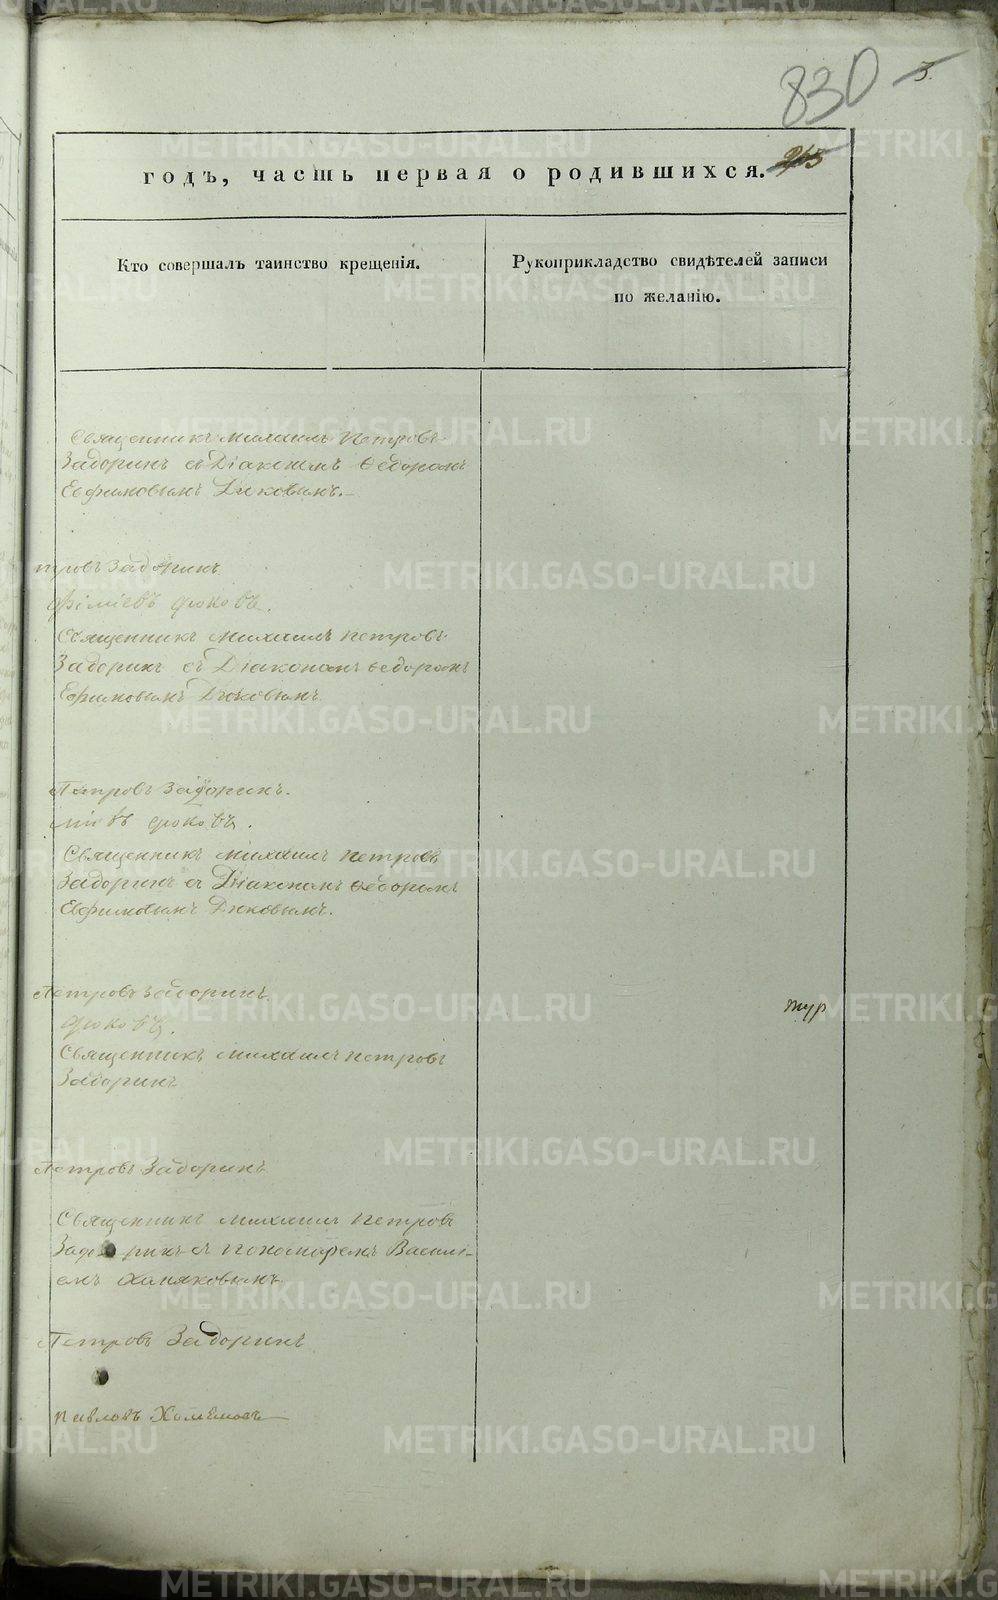 830 3.
годъ, часть первая о родившихся. 215
Кто совершалъ таинство крещенія.
Рукоприкладство свидѣтелей записи
по желанію.
Священникъ Михаилъ Петровъ
Задоринъ съ Діакономъ Ѳедоромъ
Евфимовымъ Диковымъ.
тровъ Задоринъ
Священникъ Михаилъ Петровъ
Задоринъ съ Діакономъ Ѳедоромъ
Ефимовымъ Диковымъ
Петровъ Задоринъ.
Священникъ Михаилъ Петровъ
Задоринъ съ Діакономъ Ѳедоромъ
Евфимовымъ Диковымъ.
Петровъ Задоринъ
Священникъ Михаилъ Петровъ
Задоринъ
Петровъ Задоринъ
Священникъ Михаилъ Петровъ
Задоринъ съ Пономаремъ Васильемъ
Петровъ Задоринъ
Павловъ
METRIKI.GASO-URAL.RU